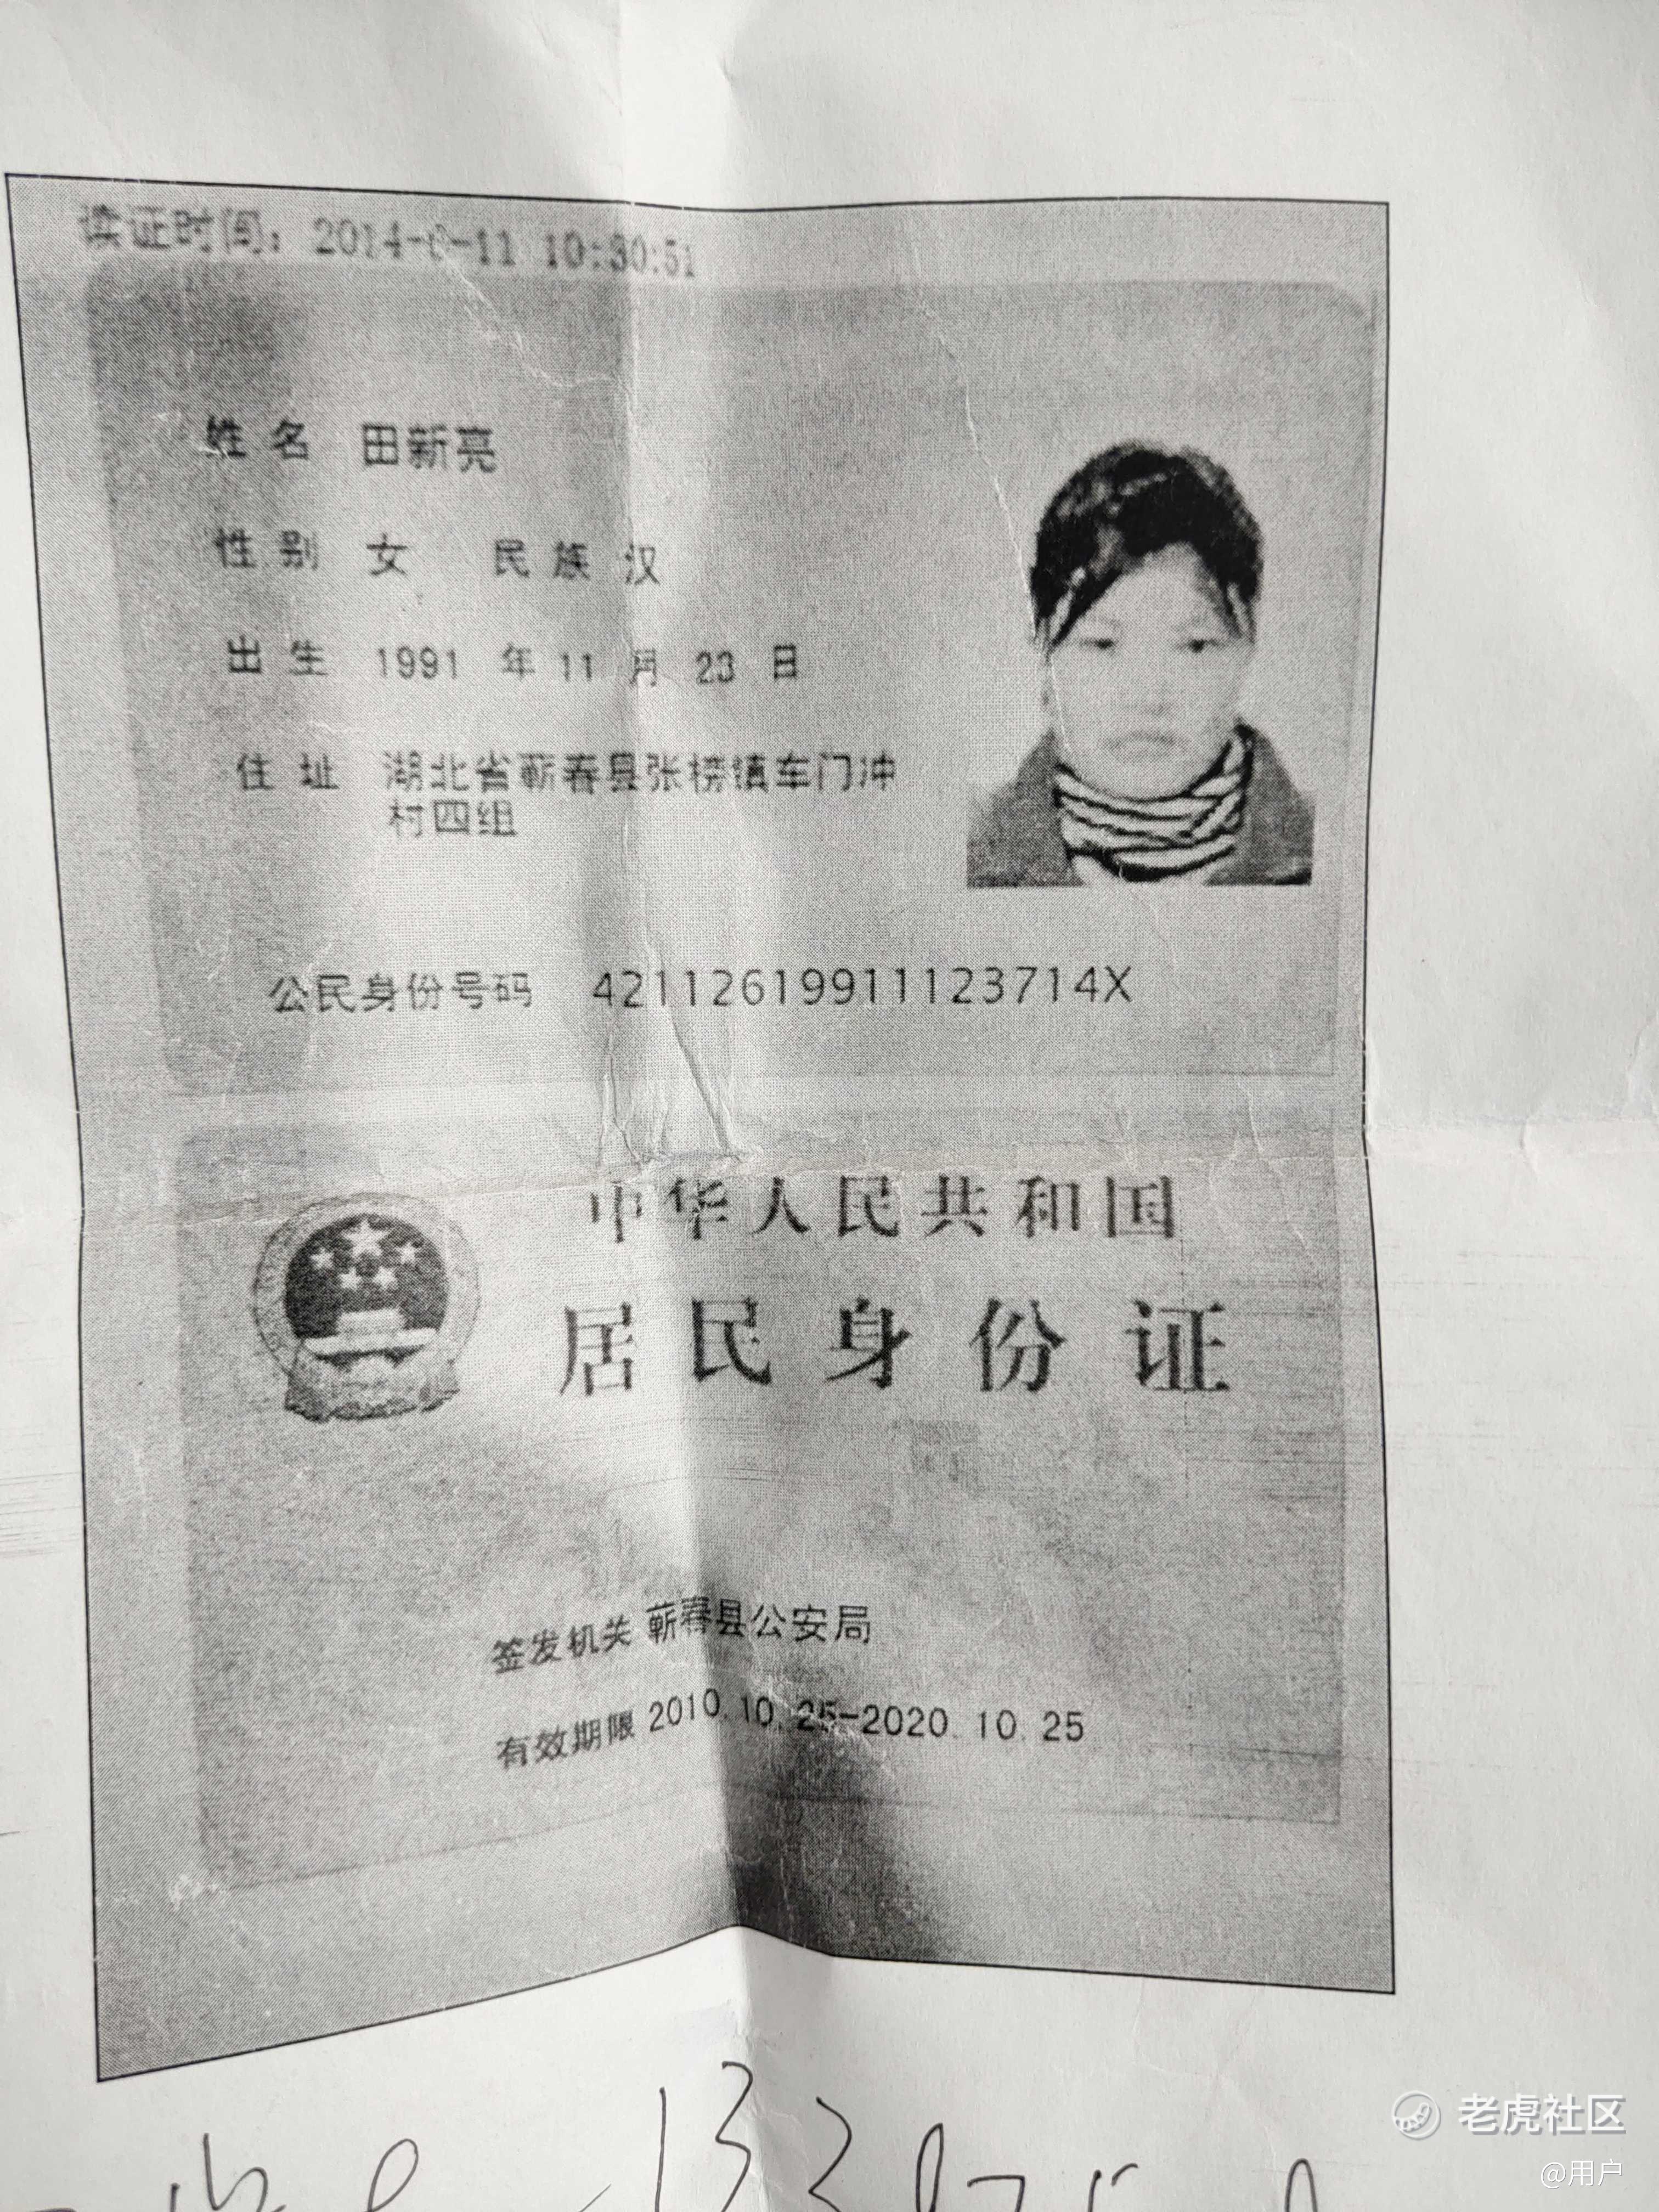 读证时间:
姓名 田新亮
性别 女 民族 汉
出生 1991 年 11 月 23 日
住址 湖北省蕲春县张榜镇车门冲
村四组
公民身份号码 42112619911123714X
中华人民共和国
居民身份证
签发机关 蕲春县公安局
有效期限 2010.10.25-2020.10.25
老虎社区
@用户